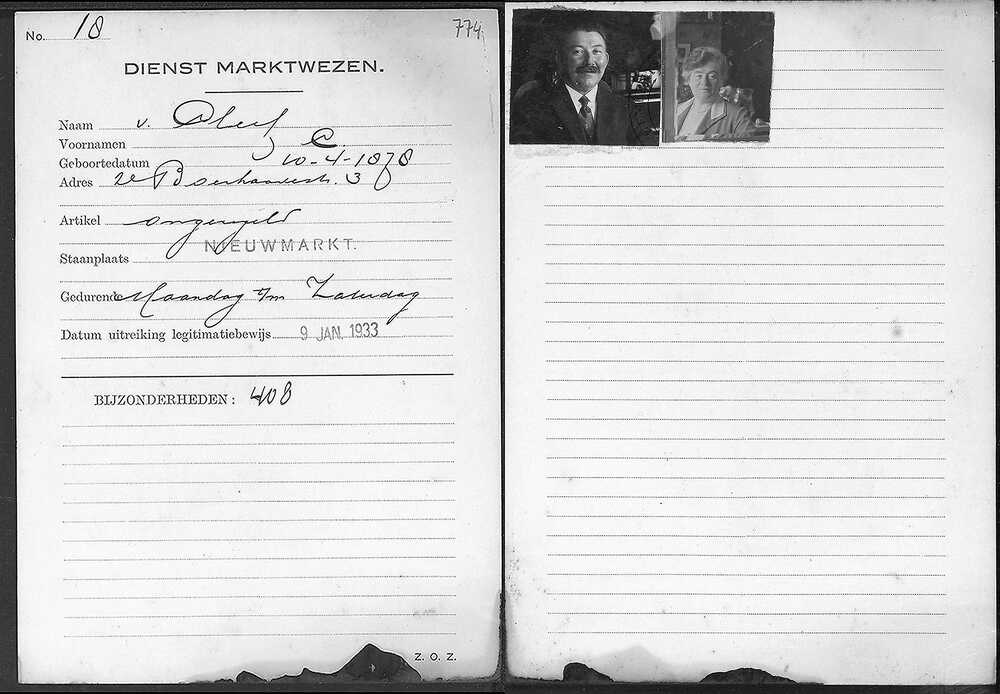 No. 18
774
DIENST MARKTWEZEN.
Naam v. Cleef
Voornamen C
Geboortedatum 10-4-1878
Adres 2e Boerhaavestr. 3
Artikel ongeregeld
NIEUWMARKT.
Staanplaats
Gedurende Maandag t/m Zaterdag
Datum uitreiking legitimatiebewijs 9 JAN. 1933
BIJZONDERHEDEN: 408
Z. O. Z.